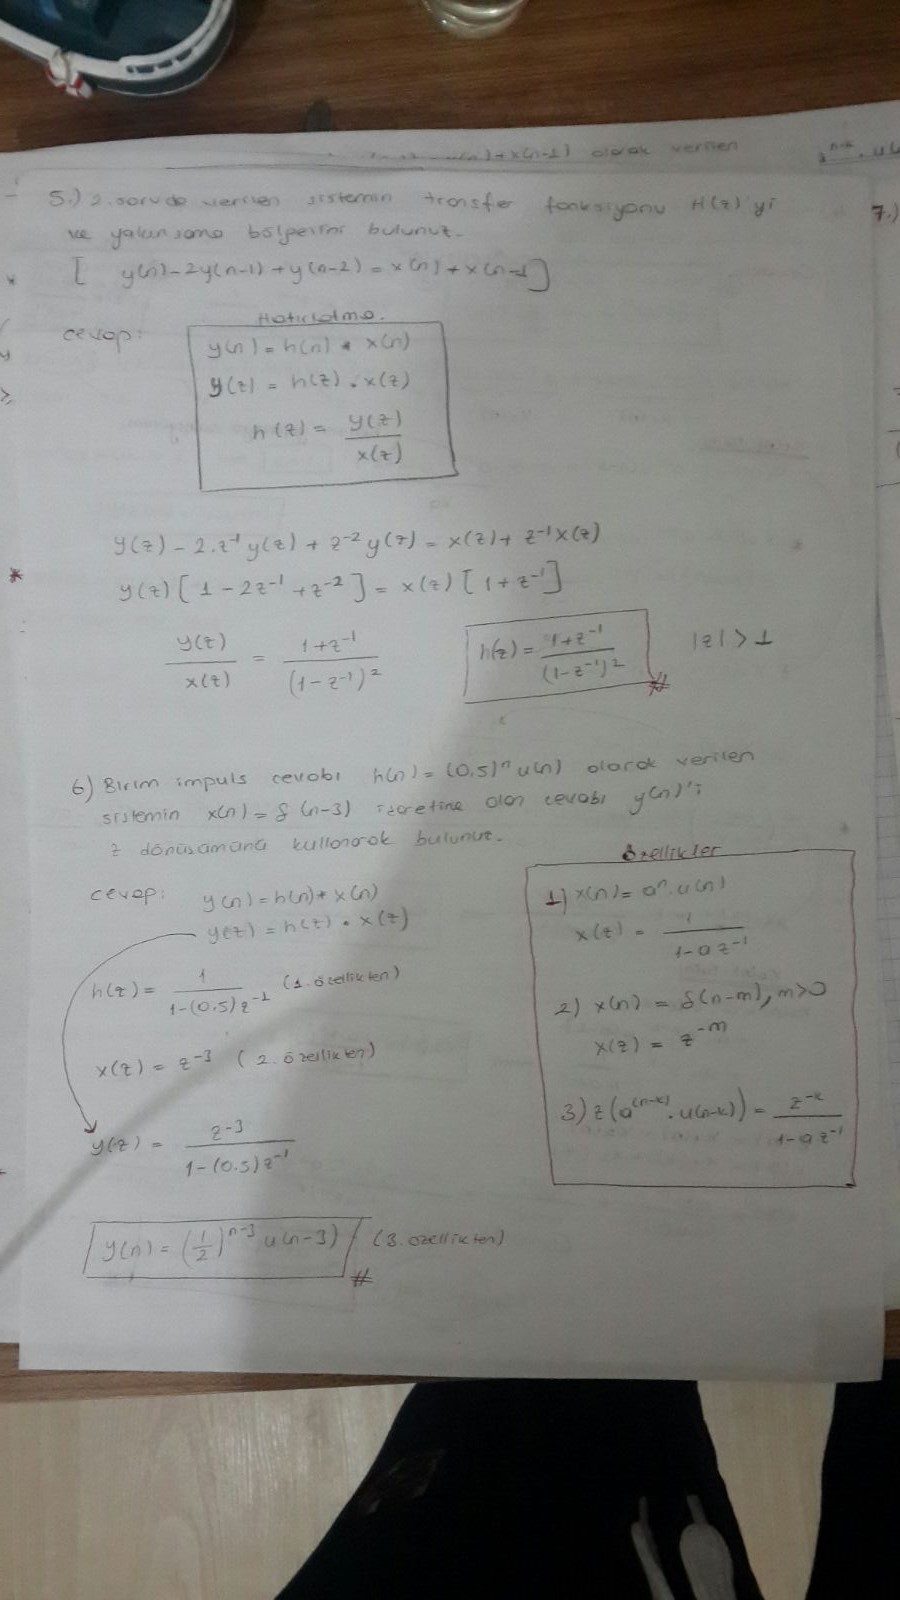 x(n-1) olarak verilen
5.) 2. soruda verilen sistemin transfer fonksiyonu H(z)'yi
ve yakınsama bölgesini bulunuz.
[ y(n)-2y(n-1)+y(n-2)=x(n)+x(n-1]
7.)
cevap:
Hatırlatma.
y(n)=h(n) * x(n)
y(z) = h(z) . x(z)
h(z) = y(z) / x(z)
y(z) - 2.z⁻¹ y(z) + z⁻² y(z) = x(z) + z⁻¹x(z)
* y(z) [ 1 - 2z⁻¹ + z⁻² ] = x(z) [ 1 + z⁻¹ ]
y(z) / x(z) = 1+z⁻¹ / (1-z⁻¹)² h(z) = 1+z⁻¹ / (1-z⁻¹)² |z| < 1
6) Birim impuls cevabı h(n) = (0,5)ⁿ u(n) olarak verilen
sistemin x(n) = δ (n-3) işaretine olan cevabı y(n)'i
z dönüşümünü kullanarak bulunuz.
cevap: y(n) = h(n)* x(n)
y(z) = h(z) . x(z)
h(z) = 1 / 1-(0,5)z⁻¹ (1. özellikten)
x(z) = z⁻³ ( 2. özellikten)
y(z) = z⁻³ / 1-(0.5)z⁻¹
y(n) = (1/2)ⁿ⁻³ u(n-3) (3. özellikten)
özellikler
1) x(n) = aⁿ.u(n)
x(z) = 1 / 1-az⁻¹
2) x(n) = δ(n-m), m>0
x(z) = z⁻ᵐ
3) z(a⁽ⁿ⁻ᵏ⁾ . u(n-k)) = z⁻ᵏ / 1-az⁻¹